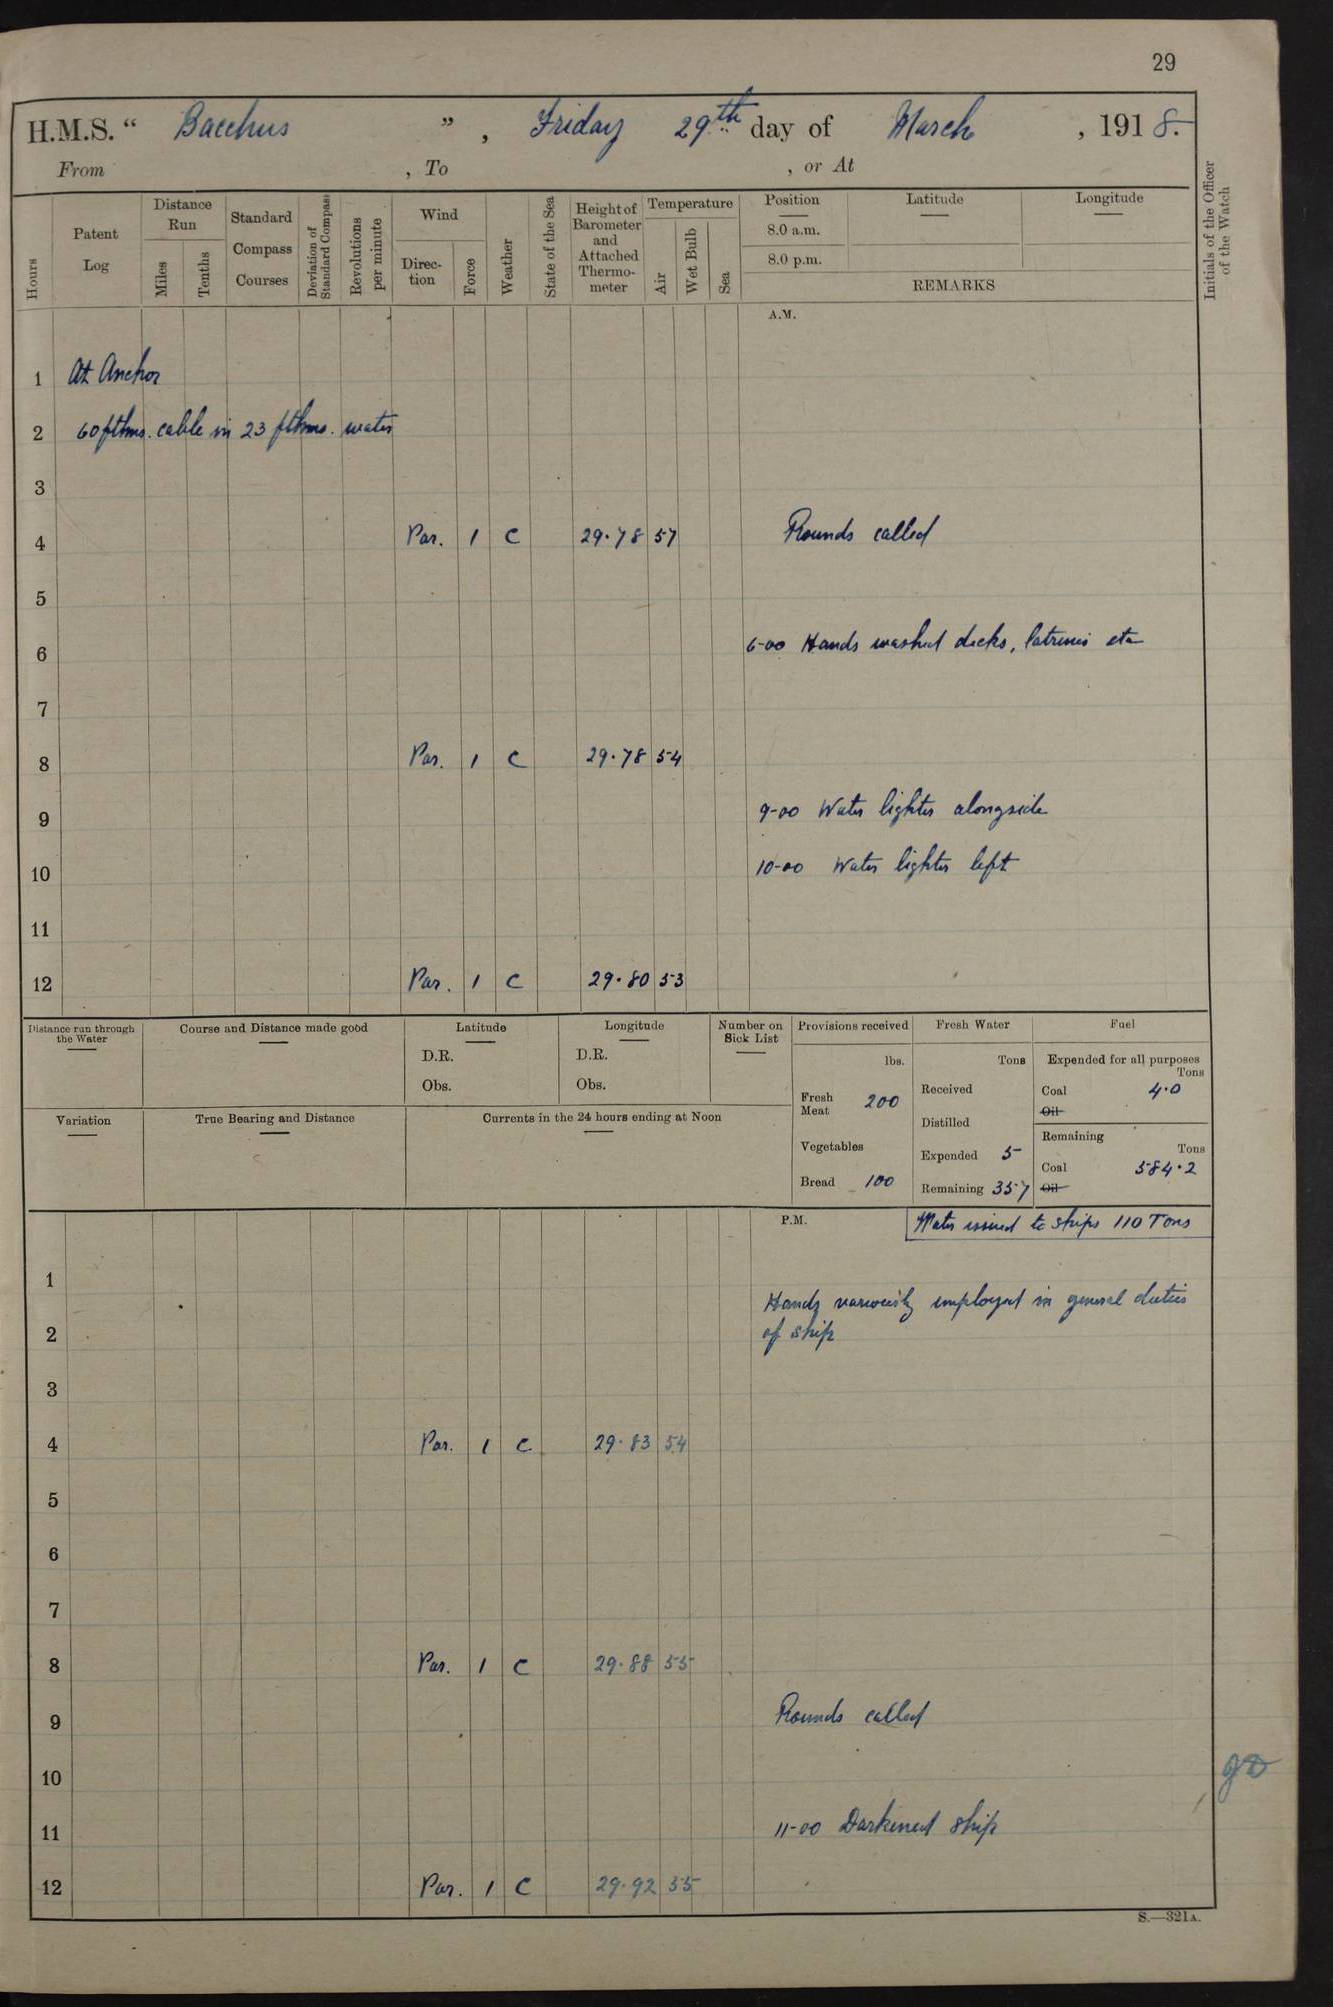 29
H.M.S. “ Bacchus ” , Friday 29th day of March , 1918.
From , To , or At
Hours
Patent Log
Distance Run
Miles
Tenths
Standard Compass Courses
Deviation of Standard Compass
Revolutions per minute
Wind
Direc-tion
Force
Weather
State of the Sea
Height of Barometer and Attached Thermo-meter
Temperature
Air
Wet Bulb
Sea
Position
8.0 a.m.
8.0 p.m.
Latitude
Longitude
REMARKS
Initials of the Officer of the Watch
A.M.
1 At Anchor
2 60 fthms. cable in 23 fthms. water
3
4 Par. 1 C 29.78 57 Rounds called
5
6 6-00 Hands washed decks, latrines etc
7
8 Par. 1 C 29.78 54
9 9-00 Water lighter alongside
10 10-00 Water lighter left
11
12 Par. 1 C 29.80 53
Distance run through the Water
Course and Distance made good
Latitude
D.R.
Obs.
Longitude
D.R.
Obs.
Number on Sick List
Provisions received
lbs.
Fresh Meat 200
Vegetables
Bread 100
Fresh Water
Tons
Received
Distilled
Expended 5
Remaining 357
Fuel
Expended for all purposes
Tons
Coal 4.0
Oil
Remaining
Tons
Coal 584.2
Oil
Variation
True Bearing and Distance
Currents in the 24 hours ending at Noon
P.M. Water issued to ships 110 Tons
1
Hands variously employed in general duties
2 of ship
3
4 Par. 1 C 29.83 54
5
6
7
8 Par. 1 C 29.88 55
9 Rounds called
10
11 11-00 Darkened ship
12 Par. 1 C 29.92 55
S.—321A.